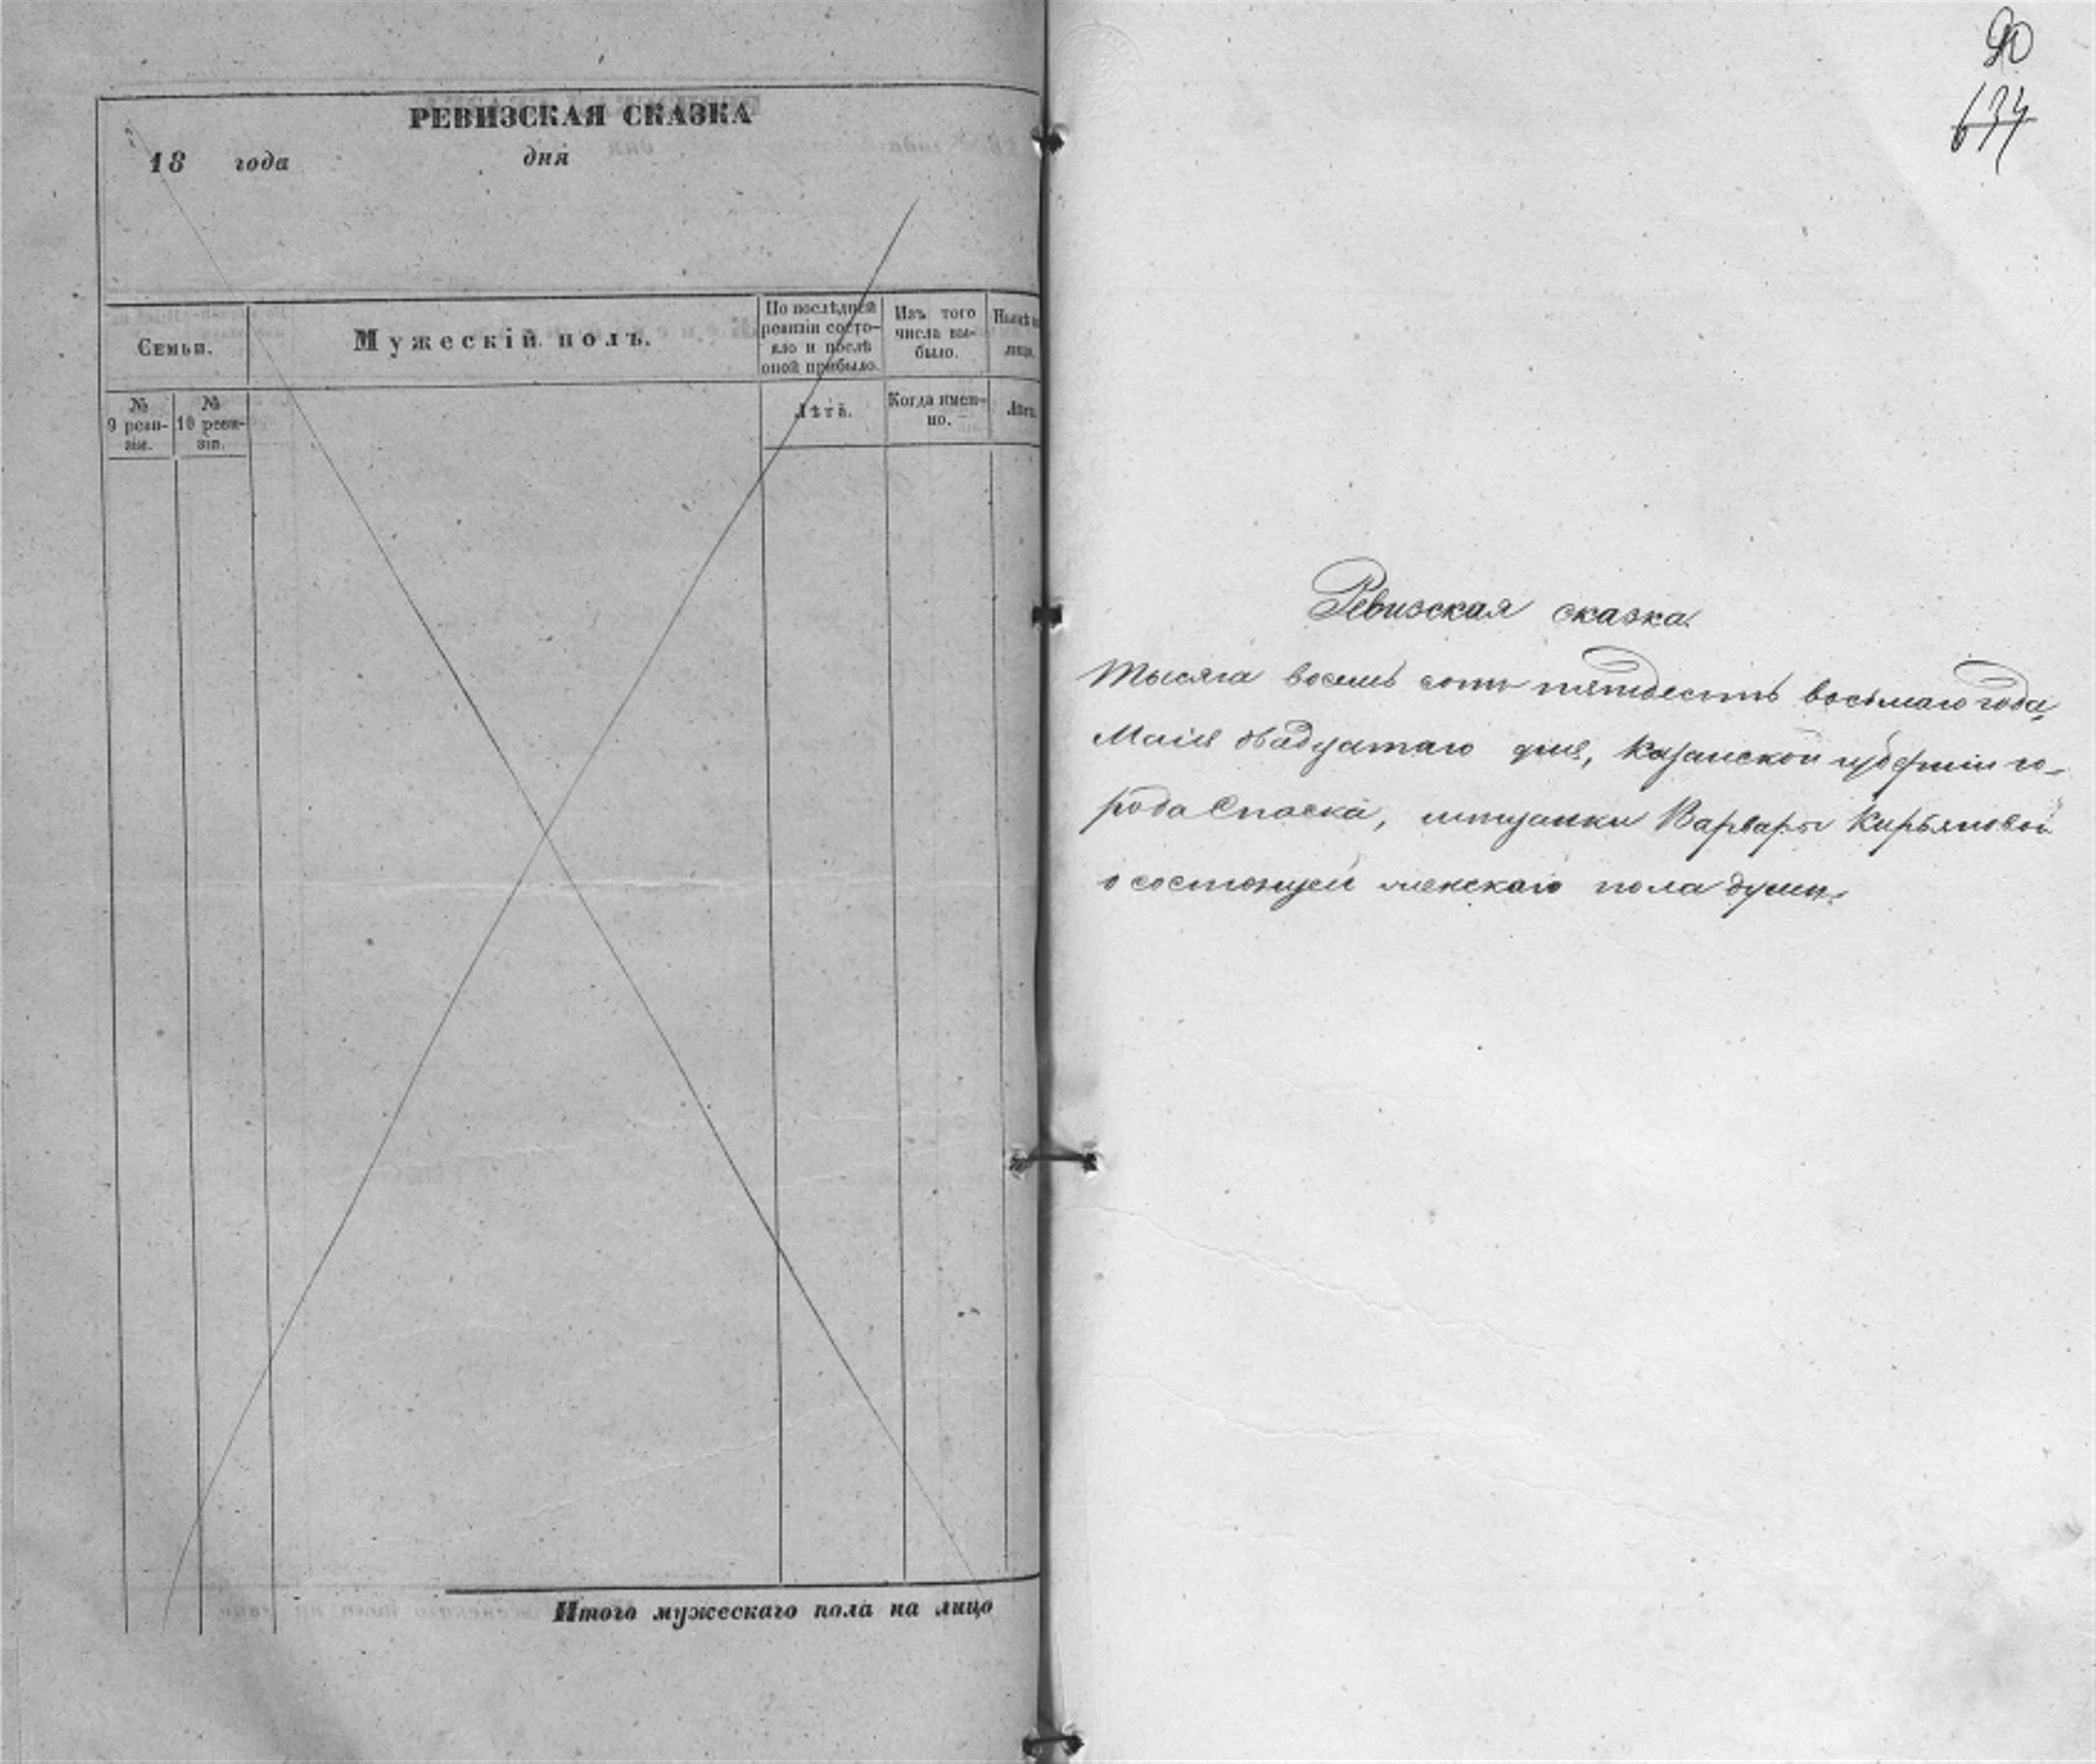 РЕВИЗСКАЯ СКАЗКА
18 года дня
Семьи.
Мужескій полъ.
По послѣдней ревизіи состо-
яло и послѣ
оной прибыло.
Изъ того
числа вы-
было.
Нынѣ на
лицо.
№
9 реви-
зіи.
№
10 реви-
зіи.
Лѣта.
Когда имен-
но.
Лѣта.
Итого мужескаго пола на лицо
90
634
Ревизская сказка.
Тысяча восемь сотъ пятьдесятъ восьмаго года,
Маія двадцатаго дня, Казанской губерніи го-
рода Спаска, мещанки Варвары Кирьяновой
о состоящей женскаго пола души.